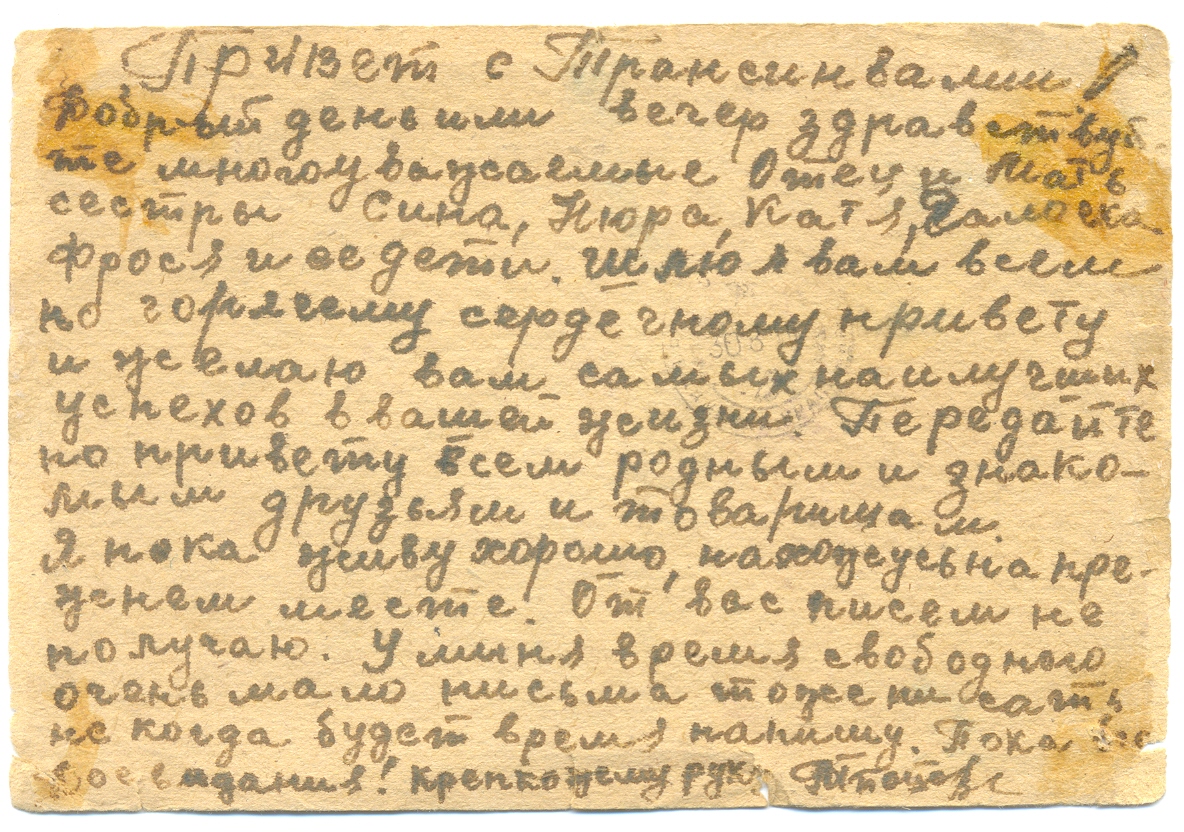 Привет с Трансинвалии!
Добрый день или вечер здравствуй-
те многоуважаемые Отец и Мать
сестры Сина, Нюра, Катя,
Фрося и ее дети. Шлю я вам всем
по горячему сердечному привету
и желаю вам самых наилучших
успехов в вашей жизни. Передайте
по привету всем родным и знако-
мым друзьям и товарищам.
Я пока живу хорошо, нахожусь на пре-
жнем месте. От вас писем не
получаю. У миня время свободного
очень мало письма тоже писать
не когда будет время напишу. Пока
до свидания! Крепко жму руку